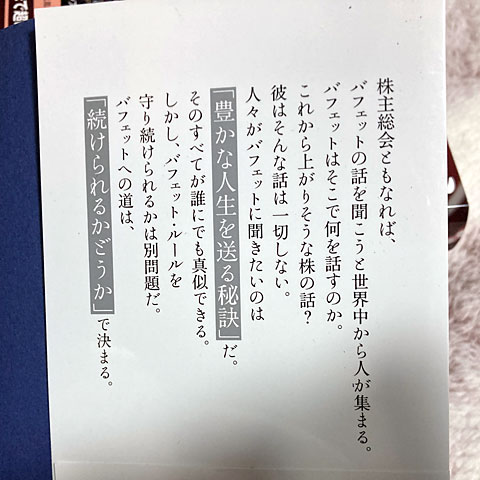 株主総会ともなれば、
バフェットの話を聞こうと世界中から人が集まる。
バフェットはそこで何を話すのか。
これから上がりそうな株の話？
彼はそんな話は一切しない。
人々がバフェットに聞きたいのは
「豊かな人生を送る秘訣」だ。
そのすべてが誰にでも真似できる。
しかし、バフェット・ルールを
守り続けられるかは別問題だ。
バフェットへの道は、
「続けられるかどうか」で決まる。